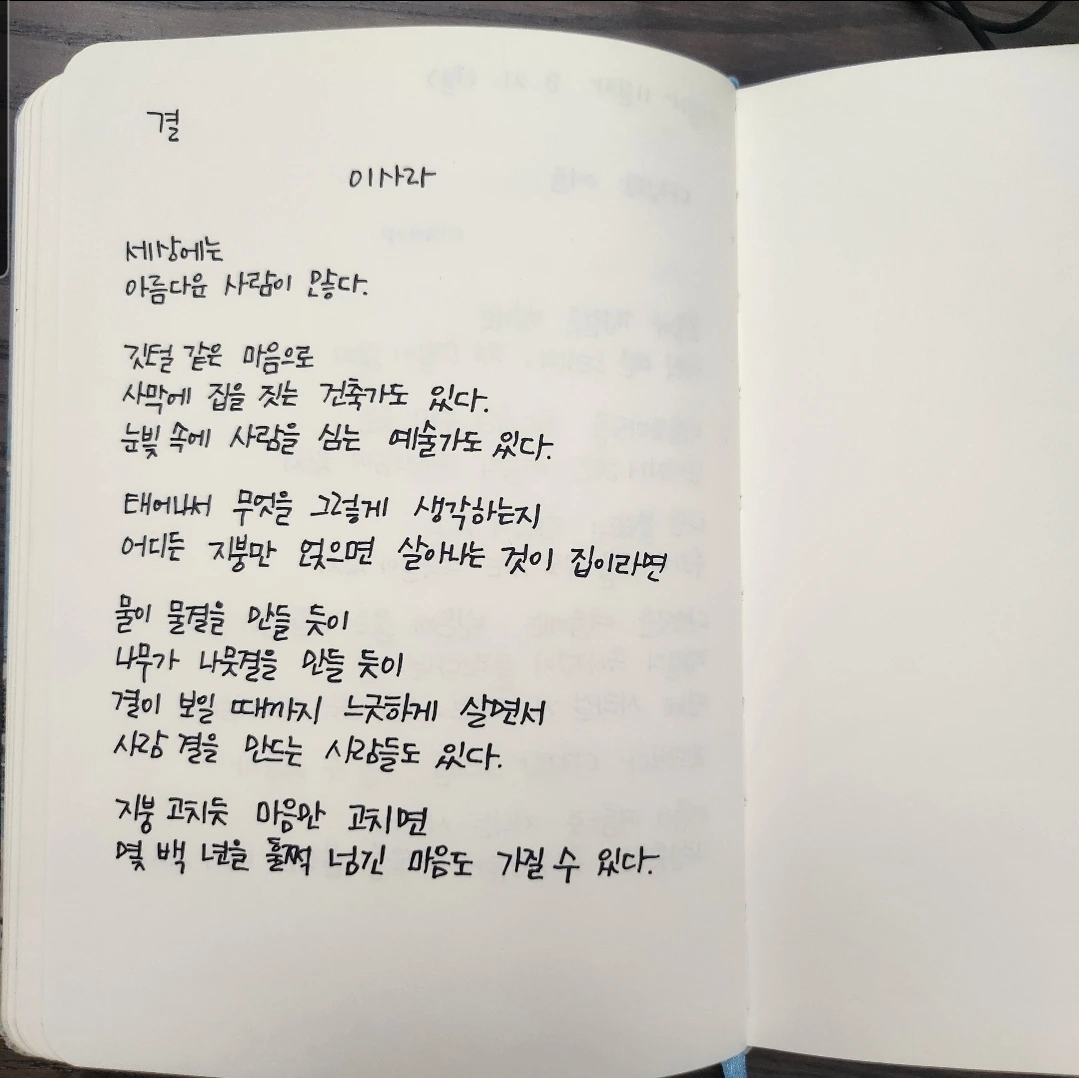 결
이사라
세상에는
아름다운 사람이 많다.
깃털 같은 마음으로
사막에 집을 짓는 건축가도 있다.
눈빛 속에 사람을 심는 예술가도 있다.
태어나서 무엇을 그렇게 생각하는지
어디든 지붕만 얹으면 살아나는 것이 집이라면
물이 물결을 만들 듯이
나무가 나뭇결을 만들 듯이
결이 보일 때까지 느긋하게 살면서
사람 결을 만드는 사람들도 있다.
지붕 고치듯 마음만 고치면
몇 백 년을 훌쩍 넘긴 마음도 가질 수 있다.